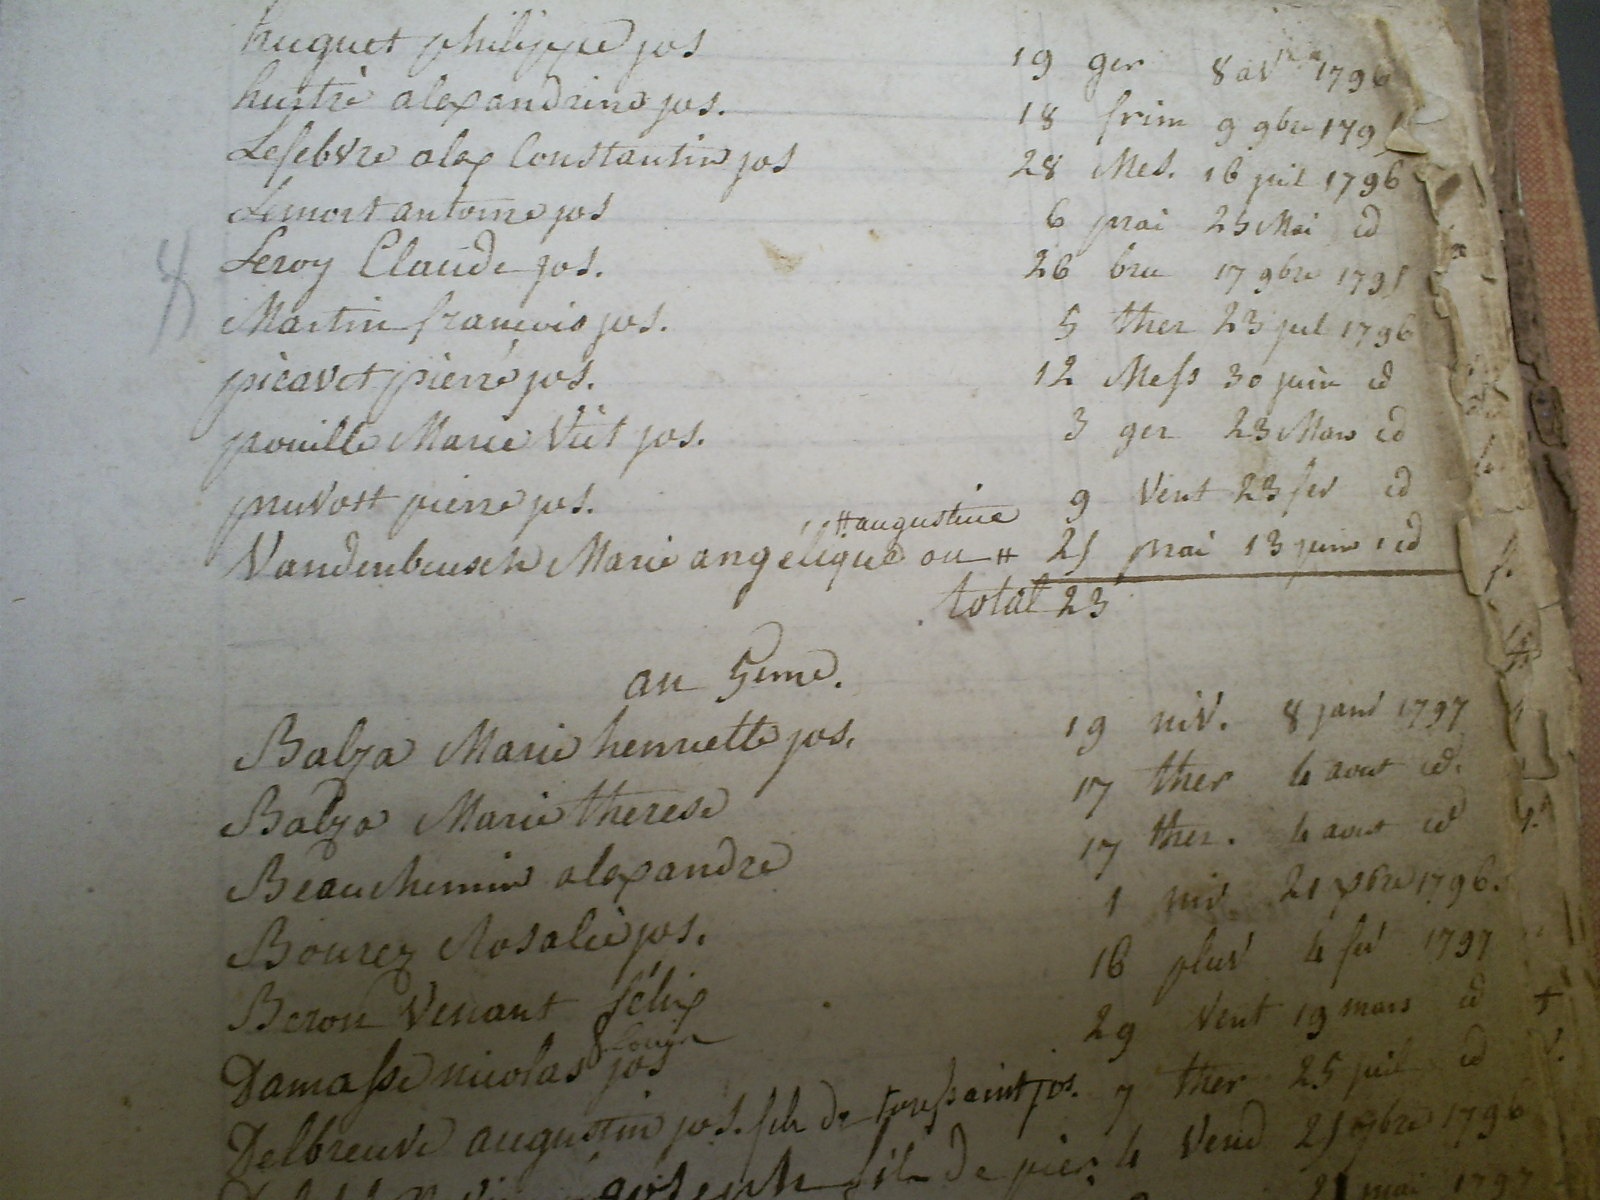 huguet philippe jos 19 ger 8 avr 1796
hustré alexandrine jos. 18 frim 9 9bre 1795
Lefebvre alex Constantin jos 28 Mes. 16 juil 1796
Lemort antoine jos 6 prai 25 Mai id
Leroy Claude jos. 26 bru 17 9bre 1795
Martin françois jos. 5 ther 23 jul 1796
picavet pierre jos. 12 Mess 30 juin id
pouille Marie Vict jos. 3 ger 23 Mars id
pruvost pierre jos. 9 Vent 23 fev id
# augustine
Vandenbusch Marie angélique ou # 25 prai 13 juin id
total 23
an 5eme.
Balza Marie henriette jos. 19 niv. 8 janv 1797
Balza Marie therese 17 ther 4 aout id.
Beauchemin alexandre 17 ther. 4 aout id
Bourez Rosalie jos. 1 niv 21 xbre 1796.
Beron Venant félix 16 pluv 4 fev 1797
Louis
Damasse nicolas jos 29 Vent 19 mars id +
Delbreuve augustin jos. fils de toussaint jos. 7 ther 25 juil id
joseph fils de pier. 4 Vend 25 7bre 1796
mai 1797